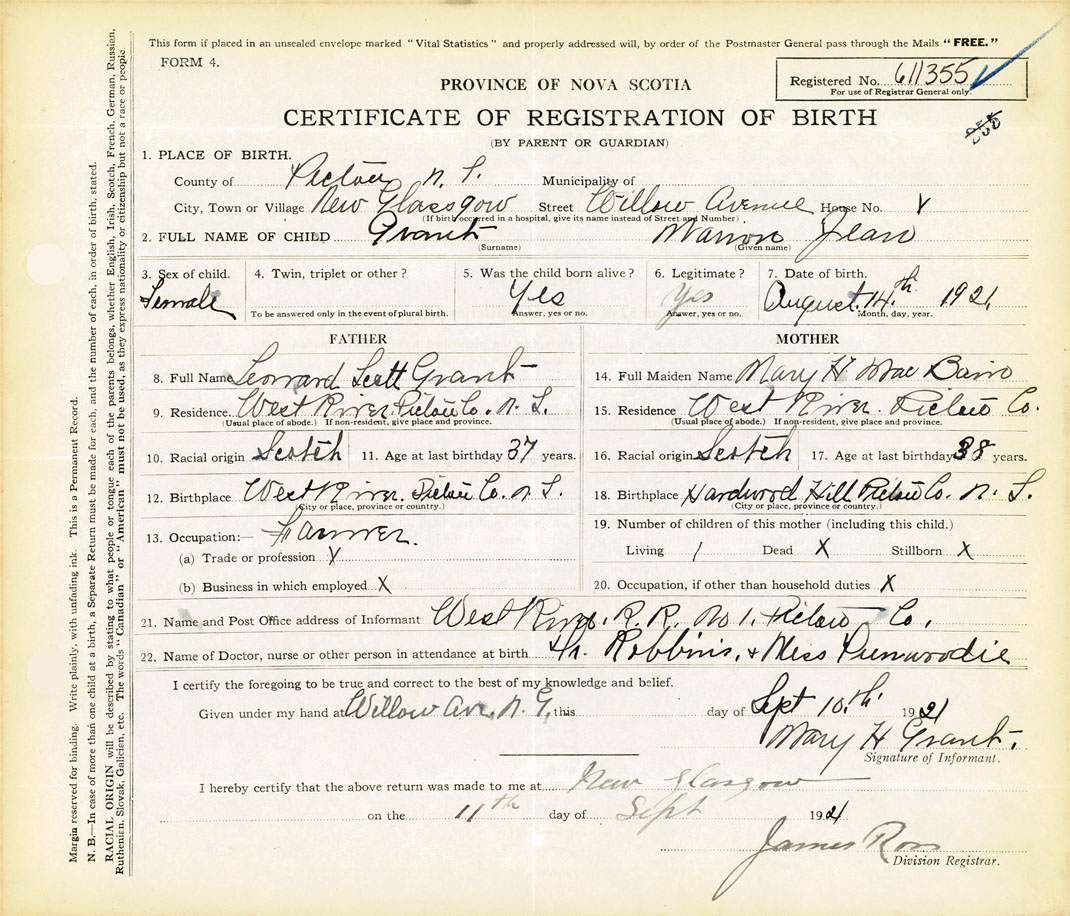 This form if placed in an unsealed envelope marked "Vital Statistics" and properly addressed will, by order of the Postmaster General pass through the Mails "FREE."
FORM 4.
Registered No. 611355
For use of Registrar General only.
PROVINCE OF NOVA SCOTIA
CERTIFICATE OF REGISTRATION OF BIRTH
(BY PARENT OR GUARDIAN)
1. PLACE OF BIRTH.
County of Pictou N. S. Municipality of
City, Town or Village New Glasgow Street Willow Avenue House No. X
(If birth occurred in a hospital, give its name instead of Street and Number)
2. FULL NAME OF CHILD Grant Marion Jean
(Surname) (Given name)
3. Sex of child. 4. Twin, triplet or other? 5. Was the child born alive? 6. Legitimate? 7. Date of birth.
Female Yes Yes August 14th 1921
To be answered only in the event of plural birth. Answer, yes or no. Answer, yes or no. Month, day, year.
FATHER
8. Full Name Leonard Scott Grant
9. Residence West River Pictou Co. N. S.
(Usual place of abode.) If non-resident, give place and province.
10. Racial origin Scotch 11. Age at last birthday 37 years.
12. Birthplace West River. Pictou Co. N. S.
(City or place, province or country.)
13. Occupation:— Farmer.
(a) Trade or profession X
(b) Business in which employed X
MOTHER
14. Full Maiden Name Mary H Mac Bain
15. Residence West River. Pictou Co.
(Usual place of abode.) If non-resident, give place and province.
16. Racial origin Scotch 17. Age at last birthday 38 years.
18. Birthplace Hardwood Hill Pictou Co. N. S.
(City or place, province or country.)
19. Number of children of this mother (including this child.)
Living 1 Dead X Stillborn X
20. Occupation, if other than household duties X
21. Name and Post Office address of Informant West River, R. R. No 1. Pictou Co.
22. Name of Doctor, nurse or other person in attendance at birth Dr. Robbins, + Miss Dunwoodie
I certify the foregoing to be true and correct to the best of my knowledge and belief.
Given under my hand at Willow Ave, N. G. this day of Sept 10th. 1921
Mary H Grant.
Signature of Informant.
I hereby certify that the above return was made to me at New Glasgow
on the 11th day of Sept 1921
James Ross
Division Registrar.
Margin reserved for binding. Write plainly, with unfading ink. This is a Permanent Record.
N. B.—In case of more than one child at a birth, a Separate Return must be made for each, and the number of each, in order of birth, stated.
RACIAL ORIGIN will be described by stating to what people or tongue each of the parents belongs, whether English, Irish, Scotch, French, German, Russian,
Ruthenian, Slovak, Galician, etc. The words "Canadian" or "American" must not be used, as they express nationality or citizenship but not a race or people